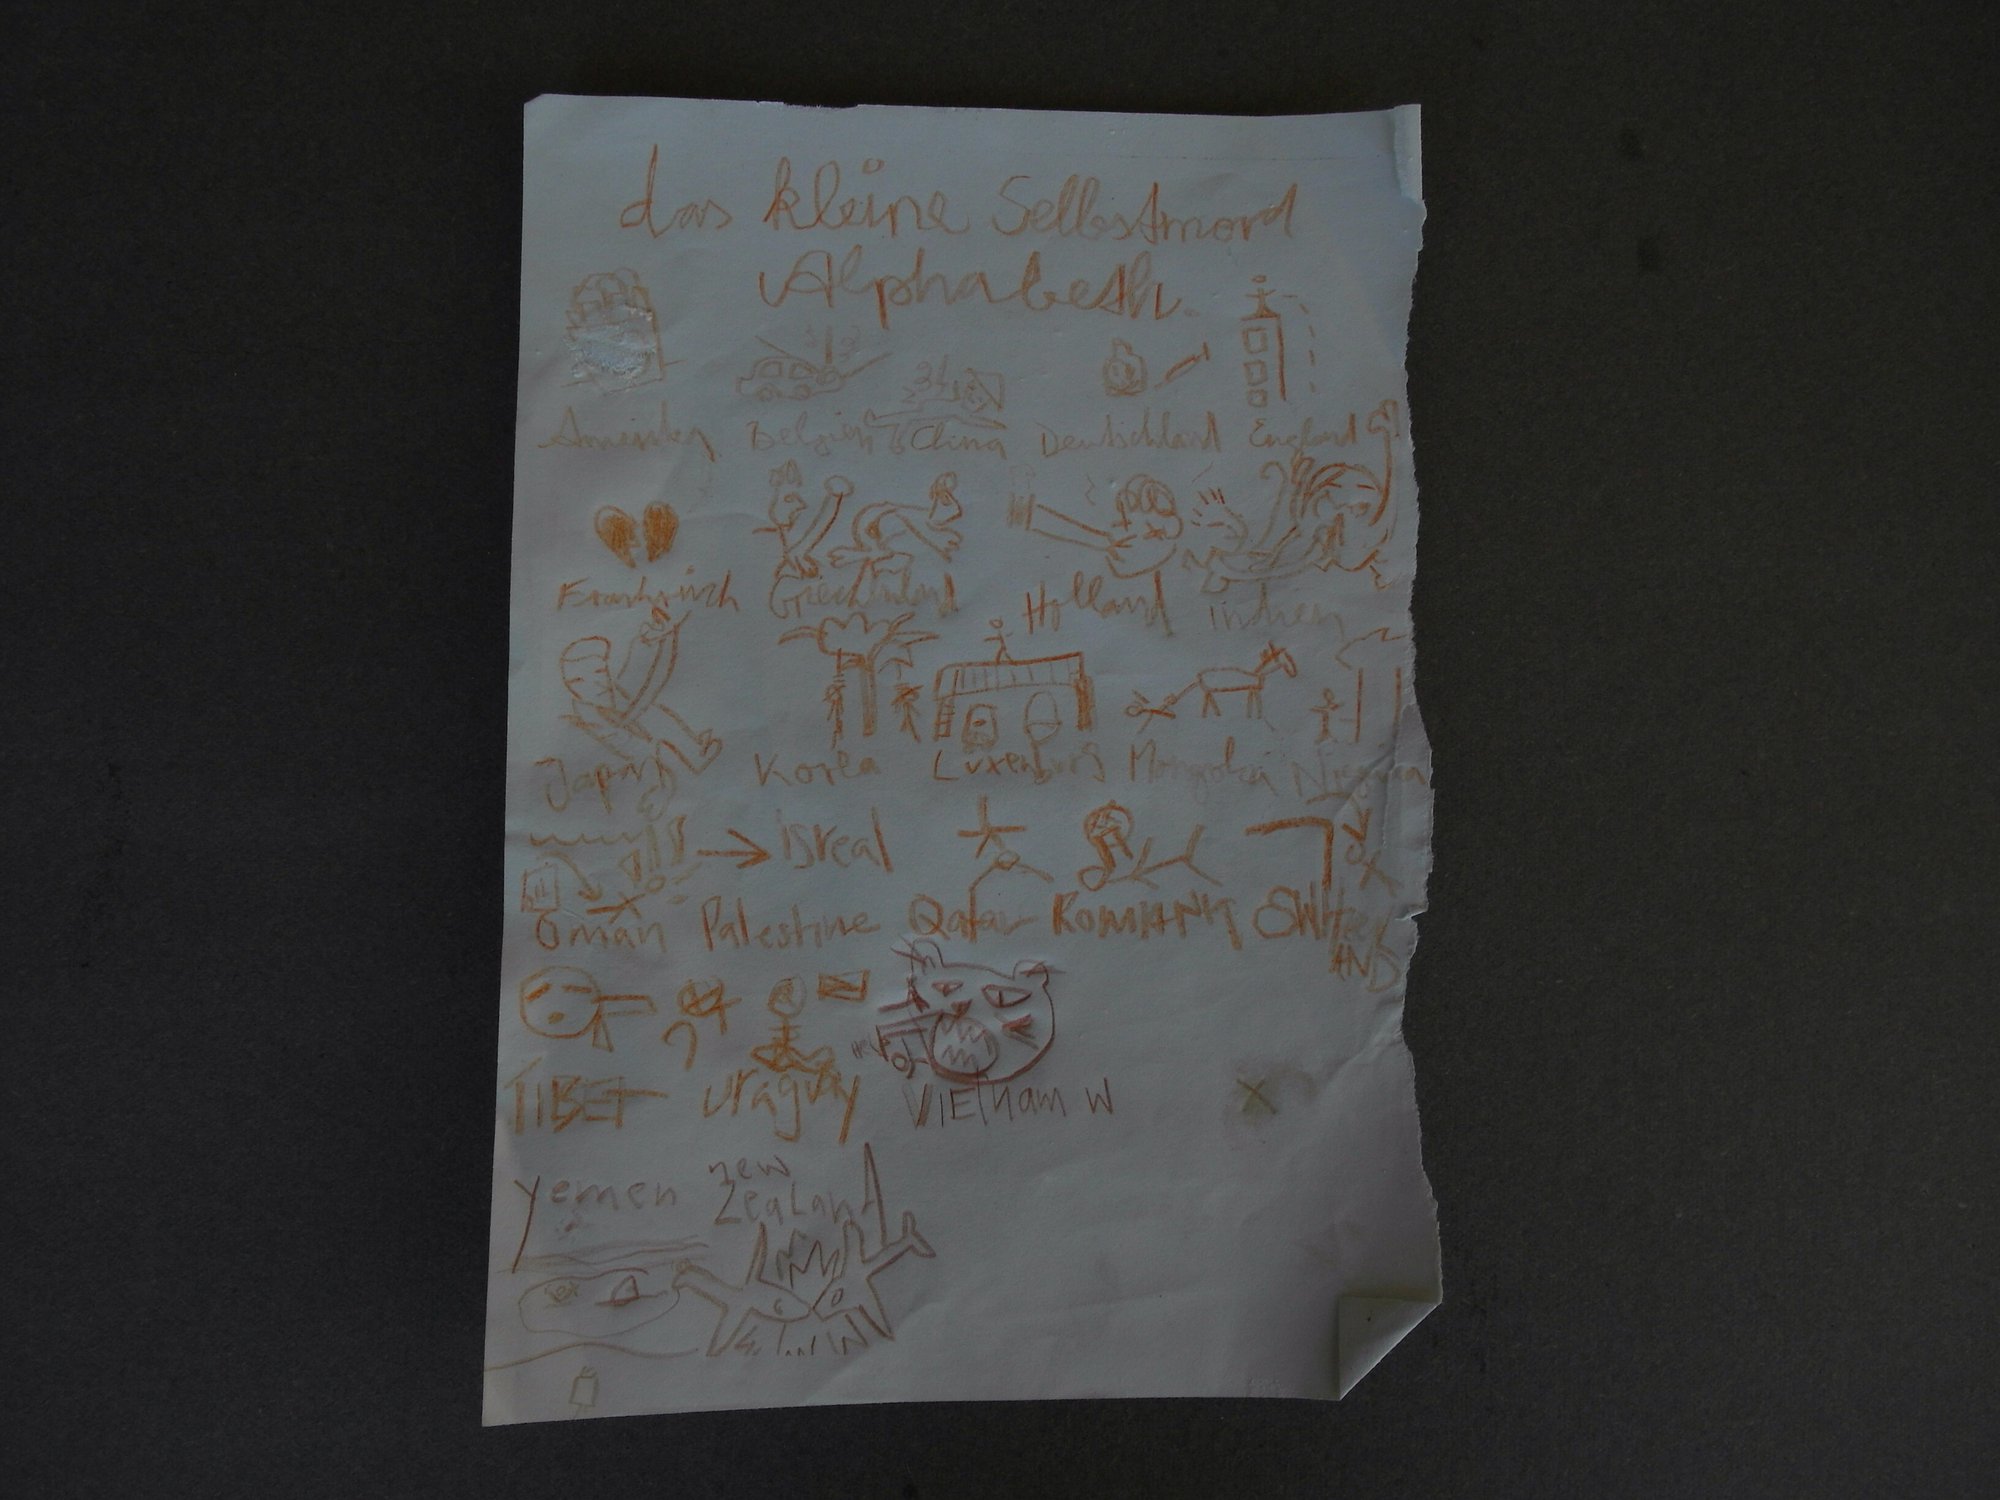 das kleine Selbstmord
Alphabeth.
Amerika Belgien China Deutschland England
Frankrisch Griechnland Holland indien
Japan Korea Luxenburg Mongolei Nigeria
→ isreal
Oman Palestine Qatar SWitzer
LAND
HELP
TIBET uraguay VIETnam W X
Yemen new
ZeaLanD